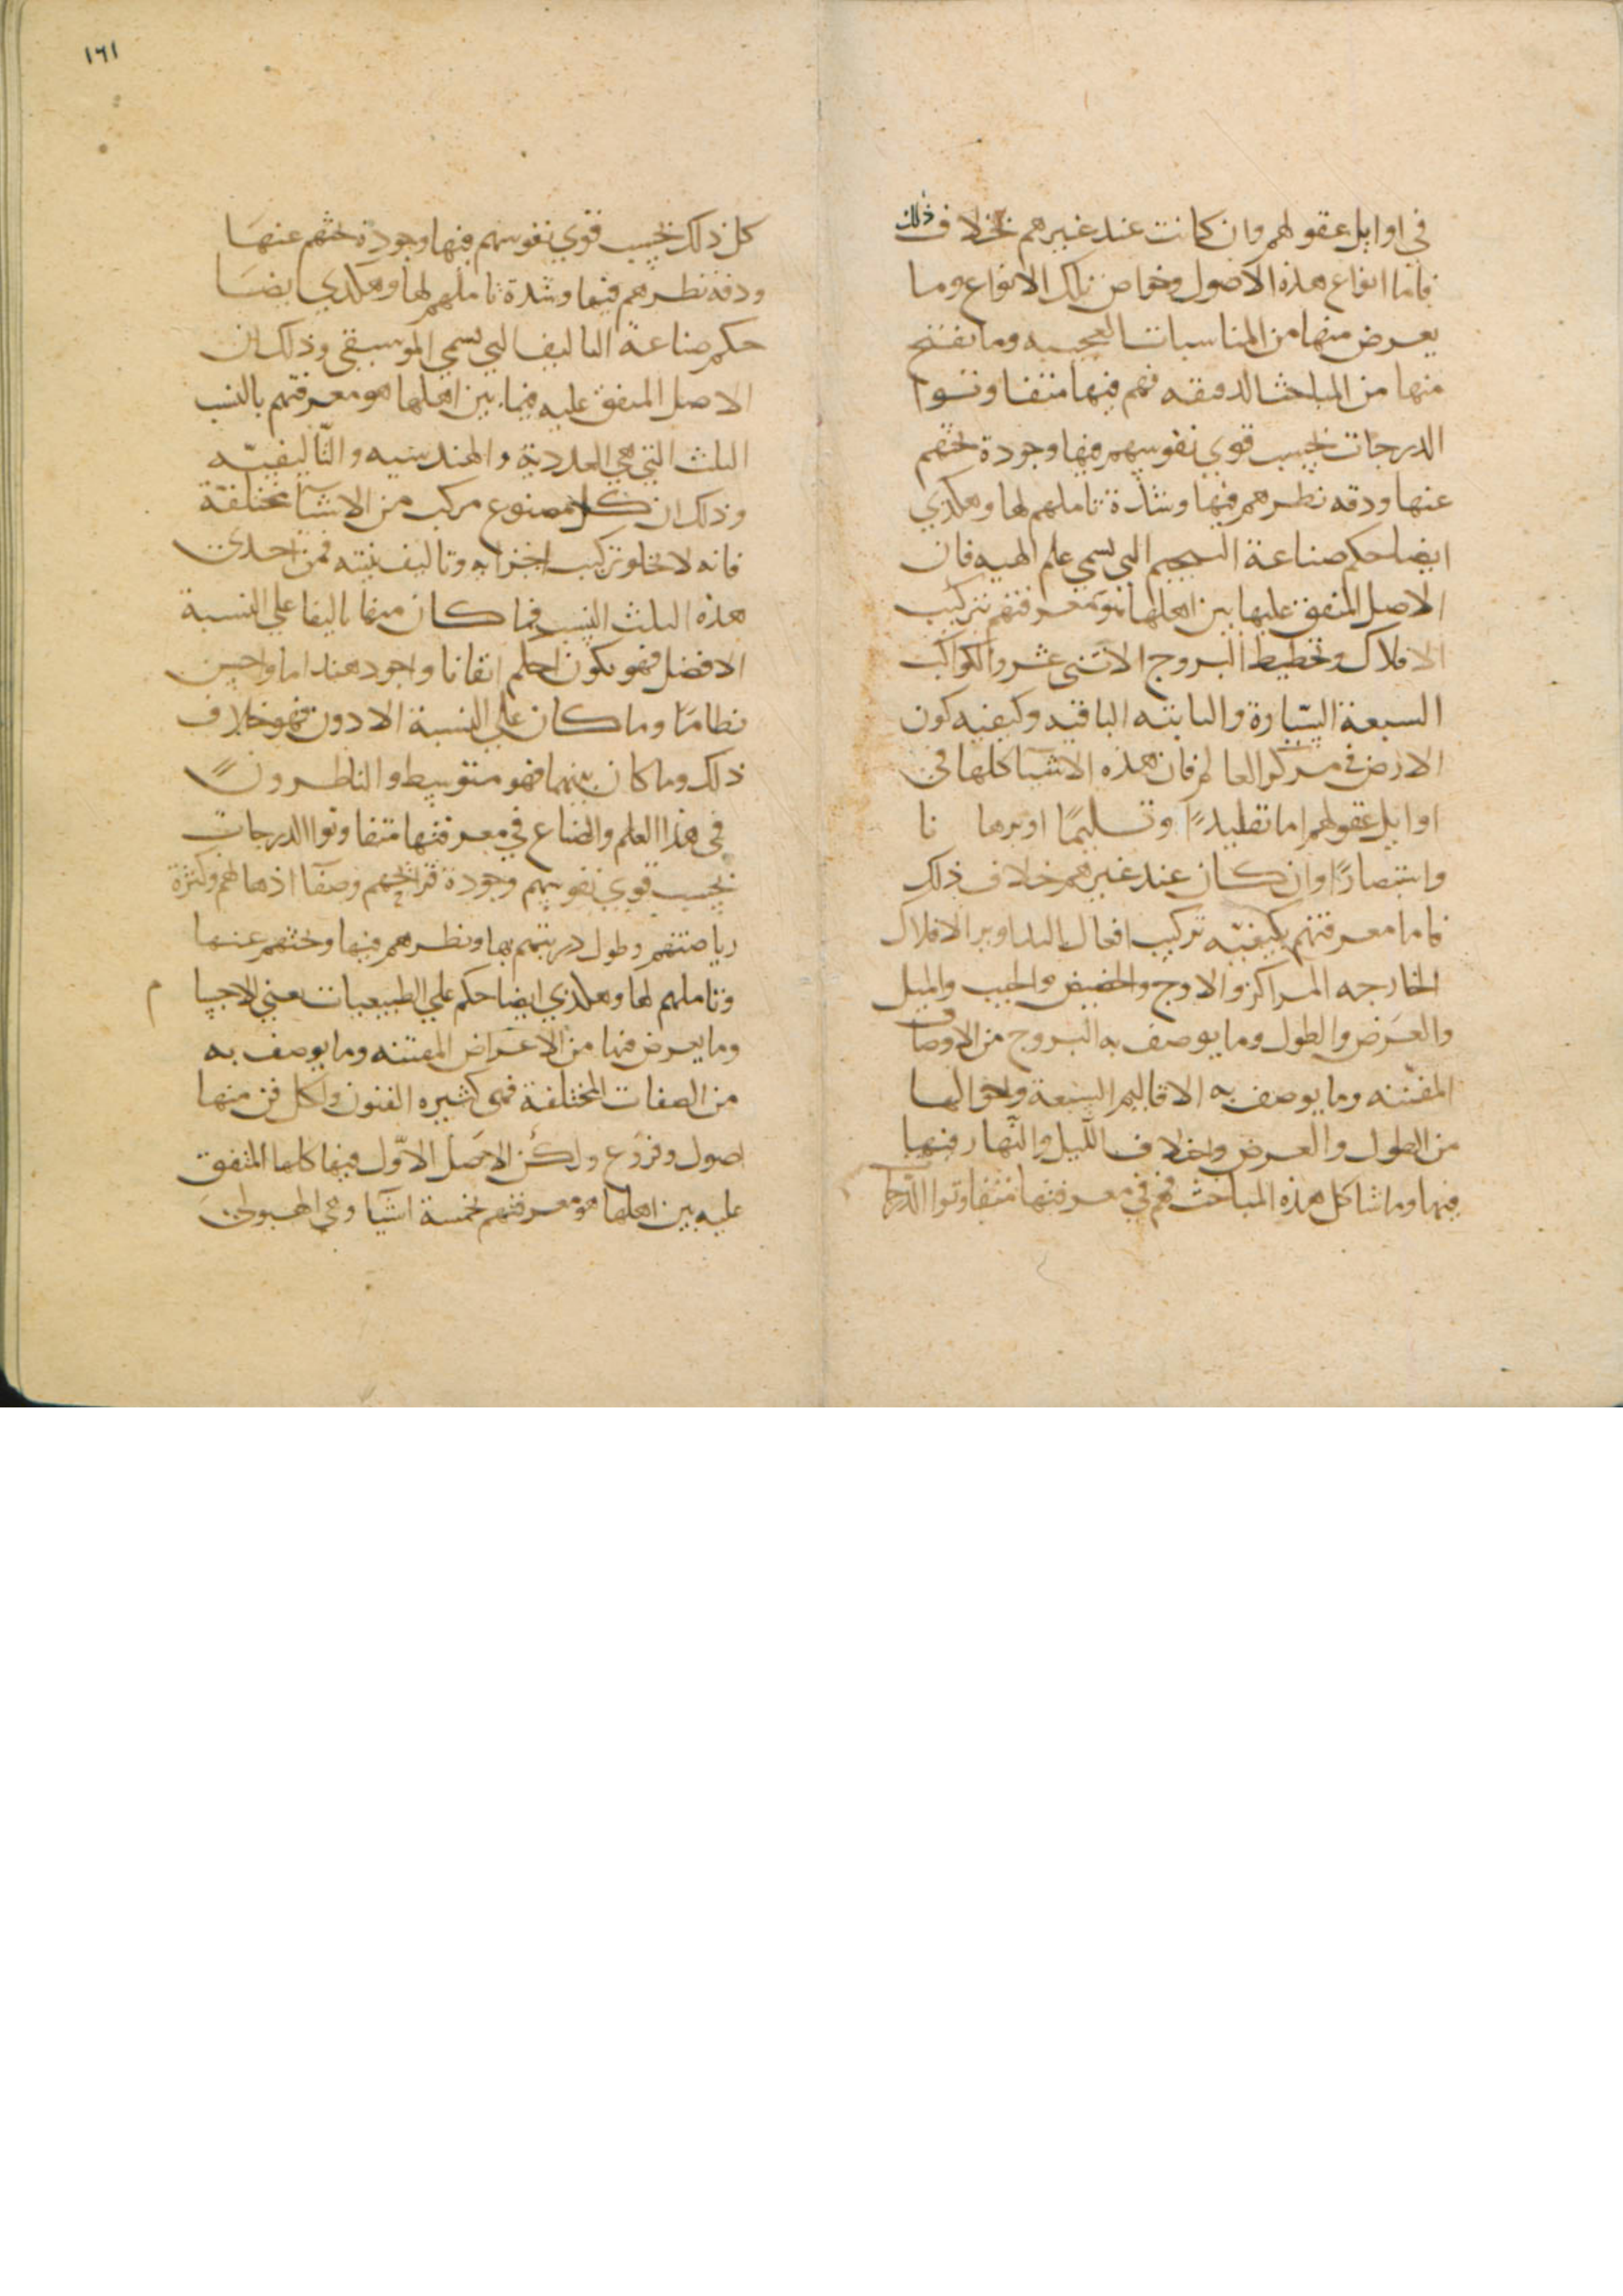 في اوايل عقولهم وان كانت عند غيرهم بخلاف ذلك
فاما انواع هذه الاصول وخواص تلك الانواع وما
يعرض منها من المناسبات العجيبه وما يفتح
منها من المباحث الدقيقه فهم فيها متفاوتوا
الدرجات بحسب قوي نفوسهم فيها وجودة بحثهم
عنها ودقه نظرهم فيها وشدة تاملهم لها وهكذي
ايضا حكم صناعة التنجيم التي تسمي علم الهيه فان
الاصل المتفق عليها بين اهلها هو معرفتهم بتركيب
الافلاك وتخطيط البروج الاثني عشر والكواكب
السبعة السيّارة والثابته الباقيه وكيفيه كون
الارض في مركز العالم فان هذه الاشيا كلها في
اوايل عقولهم اما تقليدًا وتسليمًا او برها نا
واستبصارًا وان كان عند غيرهم خلاف ذلك
فاما معرفتهم بكيفيّه تركيب افعال التداوير الافلاك
الخارجه المراكز والاوج والحضيض والجيب والميل
والعرض والطول وما يوصف به البروج من الاوصاف
المفننه وما يوصف به الاقاليم السبعة واحوالها
من الطول والعرض واختلاف اللّيل والنّهار فيها
فيها وما شاكل هذه المباحث فهم في معرفتها متفاوتوا الدّرجات
١٦١
كل ذلك بحسب قوي نفوسهم فيها وجودة بحثهم عنها
ودقه نظرهم فيها وشدة تاملهم لها وهكذي ايضا
حكم صناعة التاليف التي تسمي الموسيقي وذلك ان
الاصل المتفق عليه فيما بين اهلها هو معرفتهم بالنسب
الثلث التي هي العدديّة والهندسيه والتّاليفيّه
وذلك ان كل مصنوع مركب من الاشيآ مختلفة
فانه لا تخلو تركيب اجزايه وتاليف بنيته من احدي
هذه الثلث النسب فما كان منها تاليفا علي النسبة
الافضل فهو يكون احكم اتقانا واجود هنداما واحسن
نظاما وما كان علي النسبة الادون فهو خلاف
ذلك وما كان بينهما فهو متوسط والناظرون
في هذا العلم والصناع في معرفتها متفاوتوا الدرجات
بحسب قوي نفوسهم وجودة قرائحهم وصفآ اذهانهم وكثرة
رياضتهم وطول دربتهم بها ونظرهم فيها وبحثهم عنها
وتاملهم لها وهكذي ايضا حكم علي الطبيعيات يعني الاجسام
وما يعرض فيها من الاعراض المفننه وما يوصف به
من الصفات المختلفة فهي كثيره الفنون ولكل فن منها
اصول وفروع ولكن الاصل الاوّل فيها كلها المتفق
عليه بين اهلها هو معرفتهم بخمسة اشيآ وهي الهيولي